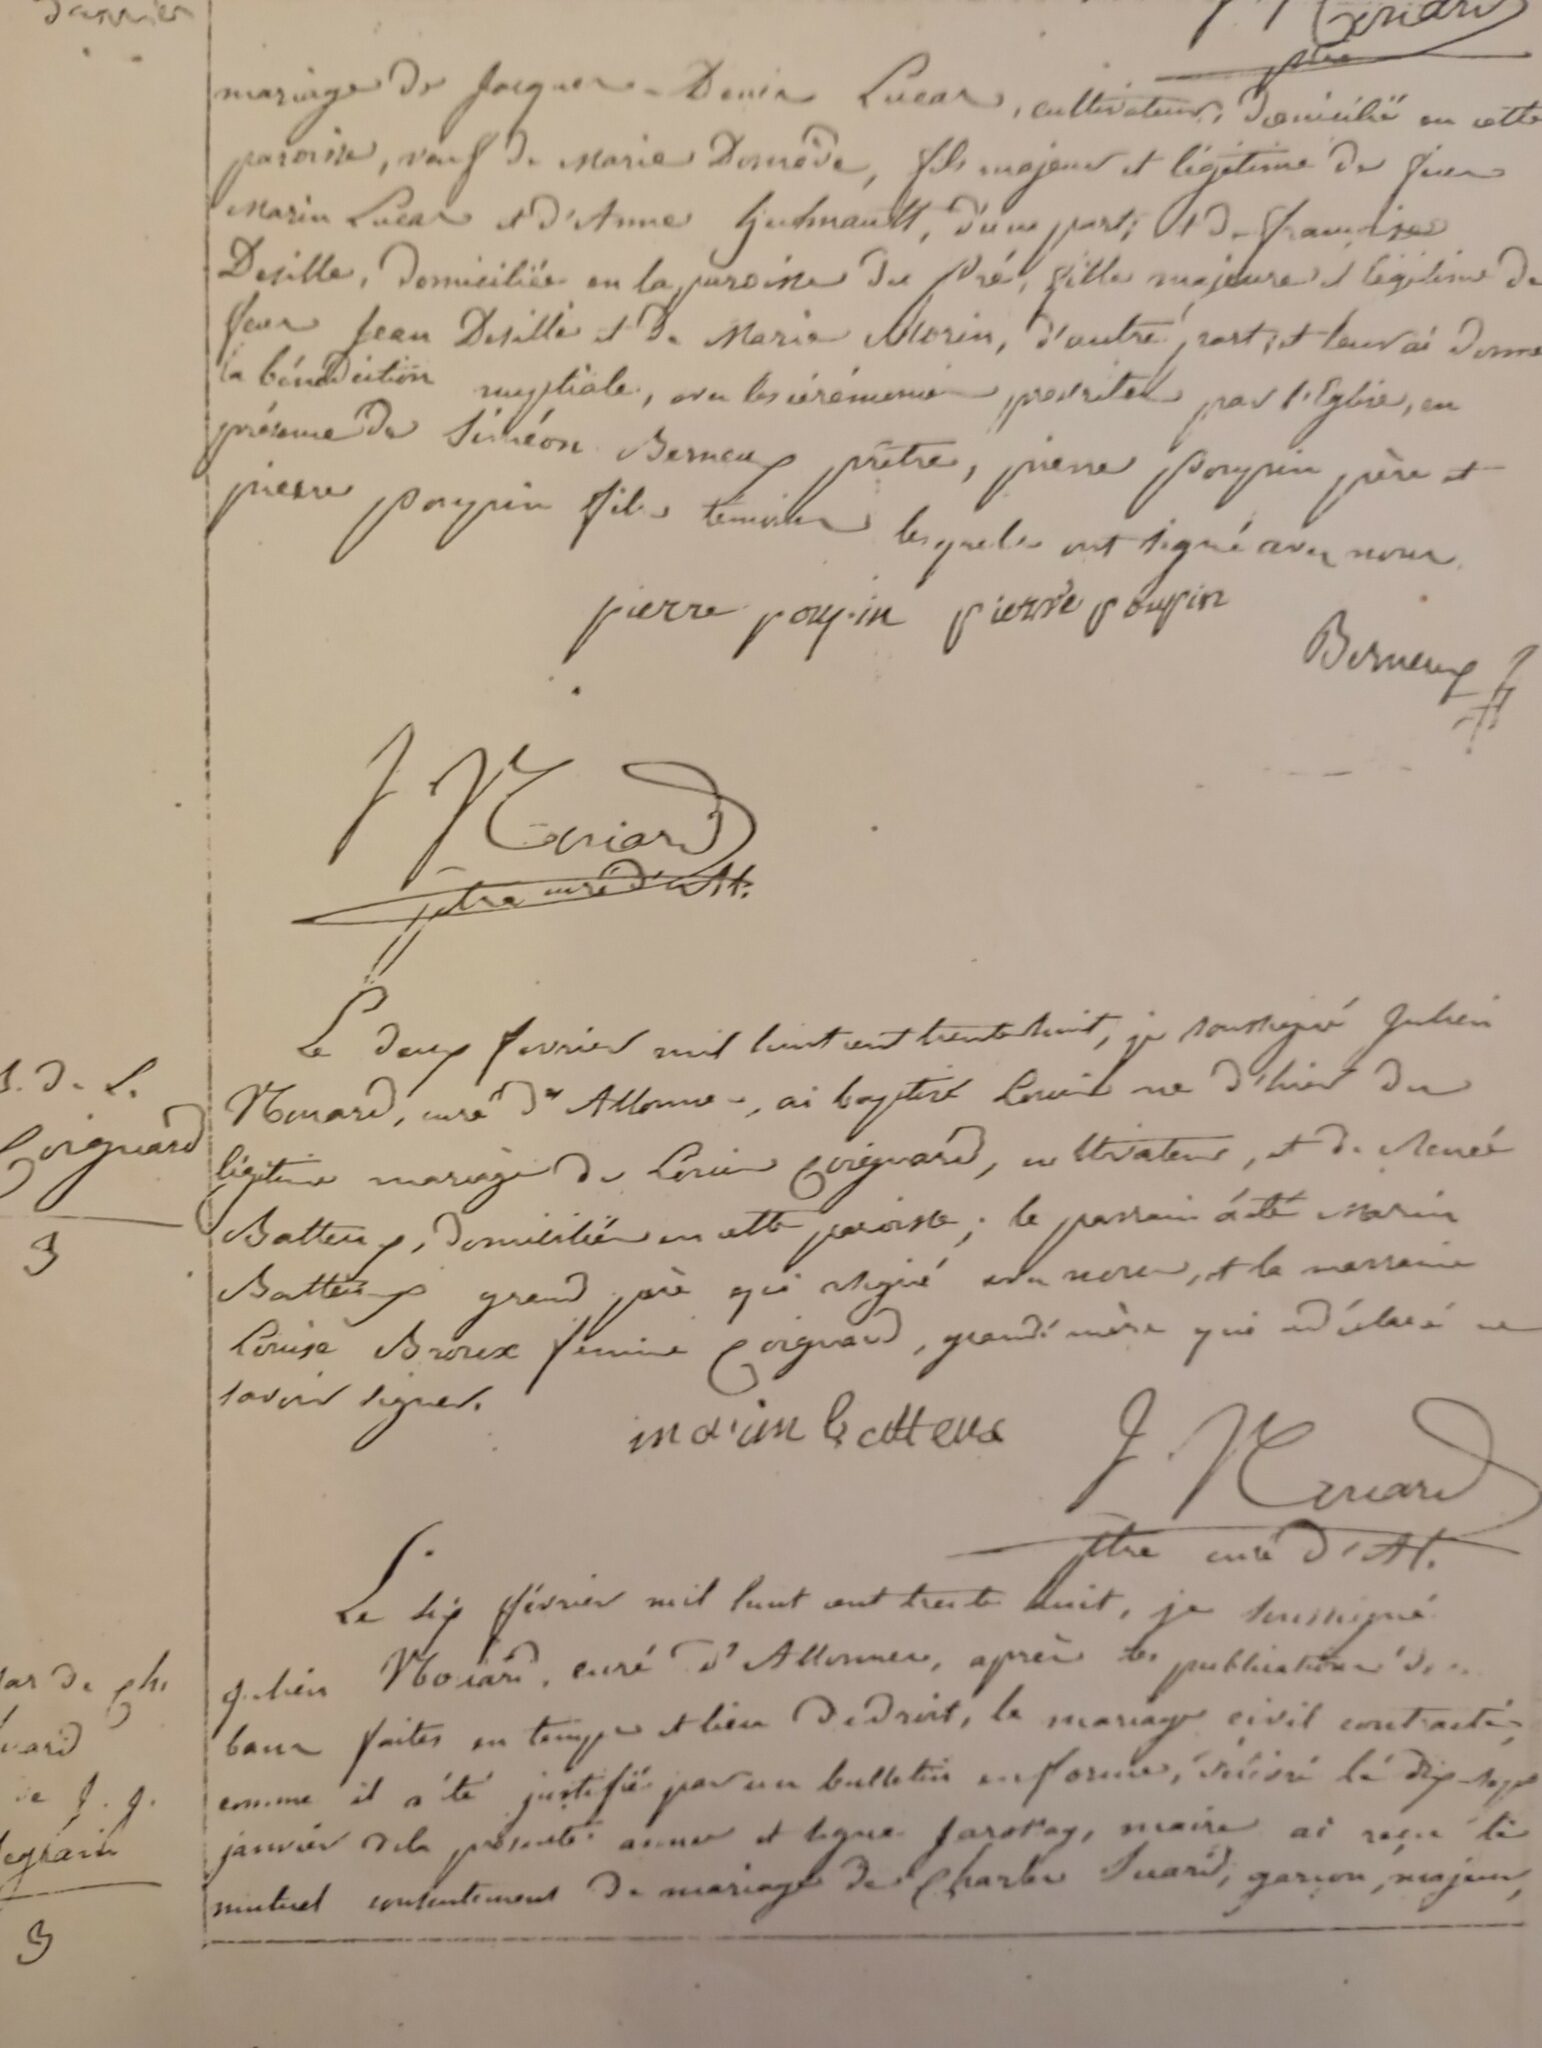 Janvier
mariage de Jacques-Denis Lucas, cultivateur, domicilié en cette
paroisse, veuf de Marie Domède, fils majeur et légitime de feu
Marin Lucas et d'Anne, d'une part; et de françoise
Desille, domiciliée en la paroisse du Pré, fille majeure et légitime de
feu Jean Desille et de Marie Morin, d'autre part; et leur ai donné
la bénédiction nuptiale, avec les cérémonies prescrites par l'Eglise, en
présence de Siméon Berneux prêtre, pierre poupin père et
pierre poupin fils témoins lesquels ont signé avec nous.
pierre poupin pierre poupin
Berneux
J Nouard
ptre curé d'All.
Le deux février mil huit cent trente huit, je soussigné Julien
Nouard, curé d'Allonnes, ai baptisé Louis né d'hier du
légitime mariage de Louis Coignard, cultivateur, et de Renée
Batteux, domiciliés en cette paroisse; le parrain a été Marin
Batteux grand père qui a signé avec nous, et la marraine
Louise Broux femme Coignard, grand'mère qui a déclaré ne
savoir signer.
marin batteux
J Nouard
ptre curé d'All.
B. de L.
Coignard
3
Le six février mil huit cent trente huit, je soussigné
Julien Nouard, curé d'Allonnes, après les publications de
bans faites en temps et lieu de droit, le mariage civil contracté,
comme il a été justifié par un bulletin en forme, délivré le dix-sept
janvier de la présente année et signé, maire ai reçu le
mutuel consentement de mariage de Charles Suard, garçon, majeur,
mar de Ch.
Suard
de J. J.
3